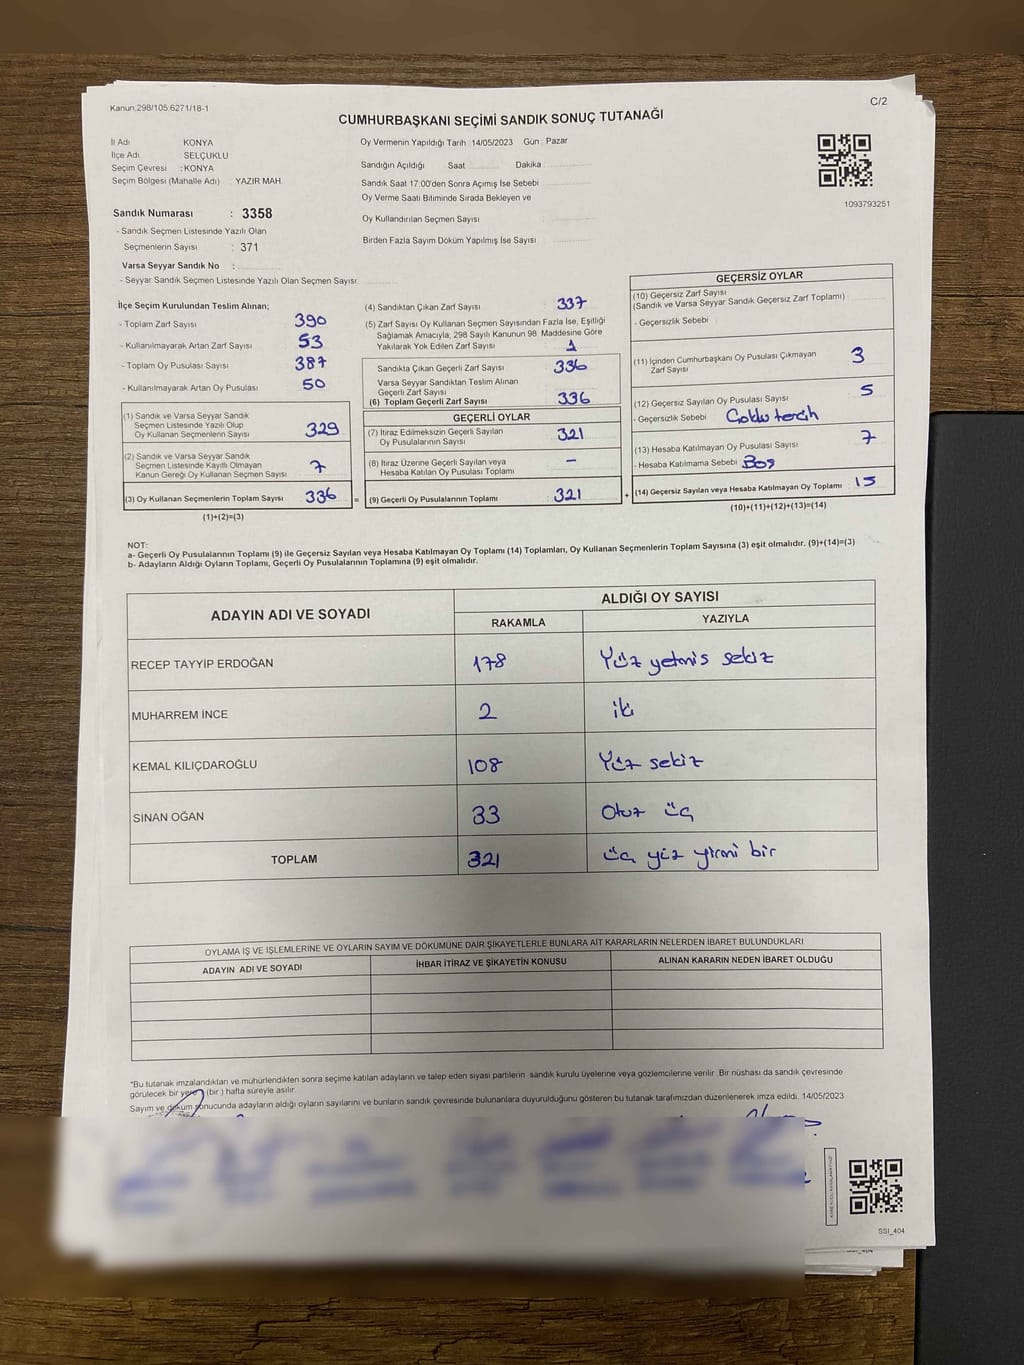 Kanun.298/105;6271/18-1
C/2
CUMHURBAŞKANI SEÇİMİ SANDIK SONUÇ TUTANAĞI
İl Adı KONYA
İlçe Adı SELÇUKLU
Seçim Çevresi : KONYA
Seçim Bölgesi (Mahalle Adı) YAZIR MAH.
Sandık Numarası : 3358
- Sandık Seçmen Listesinde Yazılı Olan
Seçmenlerin Sayısı : 371
Varsa Seyyar Sandık No :
- Seyyar Sandık Seçmen Listesinde Yazılı Olan Seçmen Sayısı:
Oy Vermenin Yapıldığı Tarih : 14/05/2023 Gün : Pazar
Sandığın Açıldığı Saat Dakika
Sandık Saat 17:00'den Sonra Açımış İse Sebebi
Oy Verme Saati Bitiminde Sırada Bekleyen ve
Oy Kullandırılan Seçmen Sayısı
Birden Fazla Sayım Döküm Yapılmış İse Sayısı
1093793251
İlçe Seçim Kurulundan Teslim Alınan;
- Toplam Zarf Sayısı 390
- Kullanılmayarak Artan Zarf Sayısı 53
- Toplam Oy Pusulası Sayısı 387
- Kullanılmayarak Artan Oy Pusulası 50
(1) Sandık ve Varsa Seyyar Sandık
Seçmen Listesinde Yazılı Olup
Oy Kullanan Seçmenlerin Sayısı 329
(2) Sandık ve Varsa Seyyar Sandık
Seçmen Listesinde Kayıtlı Olmayan
Kanun Gereği Oy Kullanan Seçmen Sayısı 7
(3) Oy Kullanan Seçmenlerin Toplam Sayısı 336
(1)+(2)=(3)
=
(4) Sandıktan Çıkan Zarf Sayısı 337
(5) Zarf Sayısı Oy Kullanan Seçmen Sayısından Fazla İse, Eşitliği
Sağlamak Amacıyla, 298 Sayılı Kanunun 98. Maddesine Göre
Yakılarak Yok Edilen Zarf Sayısı 1
Sandıkta Çıkan Geçerli Zarf Sayısı 336
Varsa Seyyar Sandıktan Teslim Alınan
Geçerli Zarf Sayısı
(6) Toplam Geçerli Zarf Sayısı 336
GEÇERLİ OYLAR
(7) İtiraz Edilmeksizin Geçerli Sayılan
Oy Pusulalarının Sayısı 321
(8) İtiraz Üzerine Geçerli Sayılan veya
Hesaba Katılan Oy Pusulası Toplamı -
(9) Geçerli Oy Pusulalarının Toplamı 321
+
GEÇERSİZ OYLAR
(10) Geçersiz Zarf Sayısı
(Sandık ve Varsa Seyyar Sandık Geçersiz Zarf Toplamı)
- Geçersizlik Sebebi
(11) İçinden Cumhurbaşkanı Oy Pusulası Çıkmayan
Zarf Sayısı 3
(12) Geçersiz Sayılan Oy Pusulası Sayısı 5
- Geçersizlik Sebebi Çoklu tercih
(13) Hesaba Katılmayan Oy Pusulası Sayısı 7
- Hesaba Katılmama Sebebi Boş
(14) Geçersiz Sayılan veya Hesaba Katılmayan Oy Toplamı 15
(10)+(11)+(12)+(13)=(14)
NOT:
a- Geçerli Oy Pusulalarının Toplamı (9) ile Geçersiz Sayılan veya Hesaba Katılmayan Oy Toplamı (14) Toplamları, Oy Kullanan Seçmenlerin Toplam Sayısına (3) eşit olmalıdır. (9)+(14)=(3)
b- Adayların Aldığı Oyların Toplamı, Geçerli Oy Pusulalarının Toplamına (9) eşit olmalıdır.
ADAYIN ADI VE SOYADI
ALDIĞI OY SAYISI
RAKAMLA YAZIYLA
RECEP TAYYİP ERDOĞAN 178 Yüz yetmis sekiz
MUHARREM İNCE 2 iki
KEMAL KILIÇDAROĞLU 108 Yüz sekiz
SİNAN OĞAN 33 Otuz üç
TOPLAM 321 üç yüz yirmi bir
OYLAMA İŞ VE İŞLEMLERİNE VE OYLARIN SAYIM VE DÖKÜMÜNE DAİR ŞİKAYETLERLE BUNLARA AİT KARARLARIN NELERDEN İBARET BULUNDUKLARI
ADAYIN ADI VE SOYADI İHBAR İTİRAZ VE ŞİKAYETİN KONUSU ALINAN KARARIN NEDEN İBARET OLDUĞU
*Bu tutanak imzalandıktan ve mühürlendikten sonra seçime katılan adayların ve talep eden siyasi partilerin sandık kurulu üyelerine veya gözlemcilerine verilir. Bir nüshası da sandık çevresinde
görülecek bir yere (bir) hafta süreyle asılır.
Sayım ve döküm sonucunda adayların aldığı oyların sayılarını ve bunların sandık çevresinde bulunanlara duyurulduğunu gösteren bu tutanak tarafımızdan düzenlenerek imza edildi. 14/05/2023
SSI_404
SSI_404